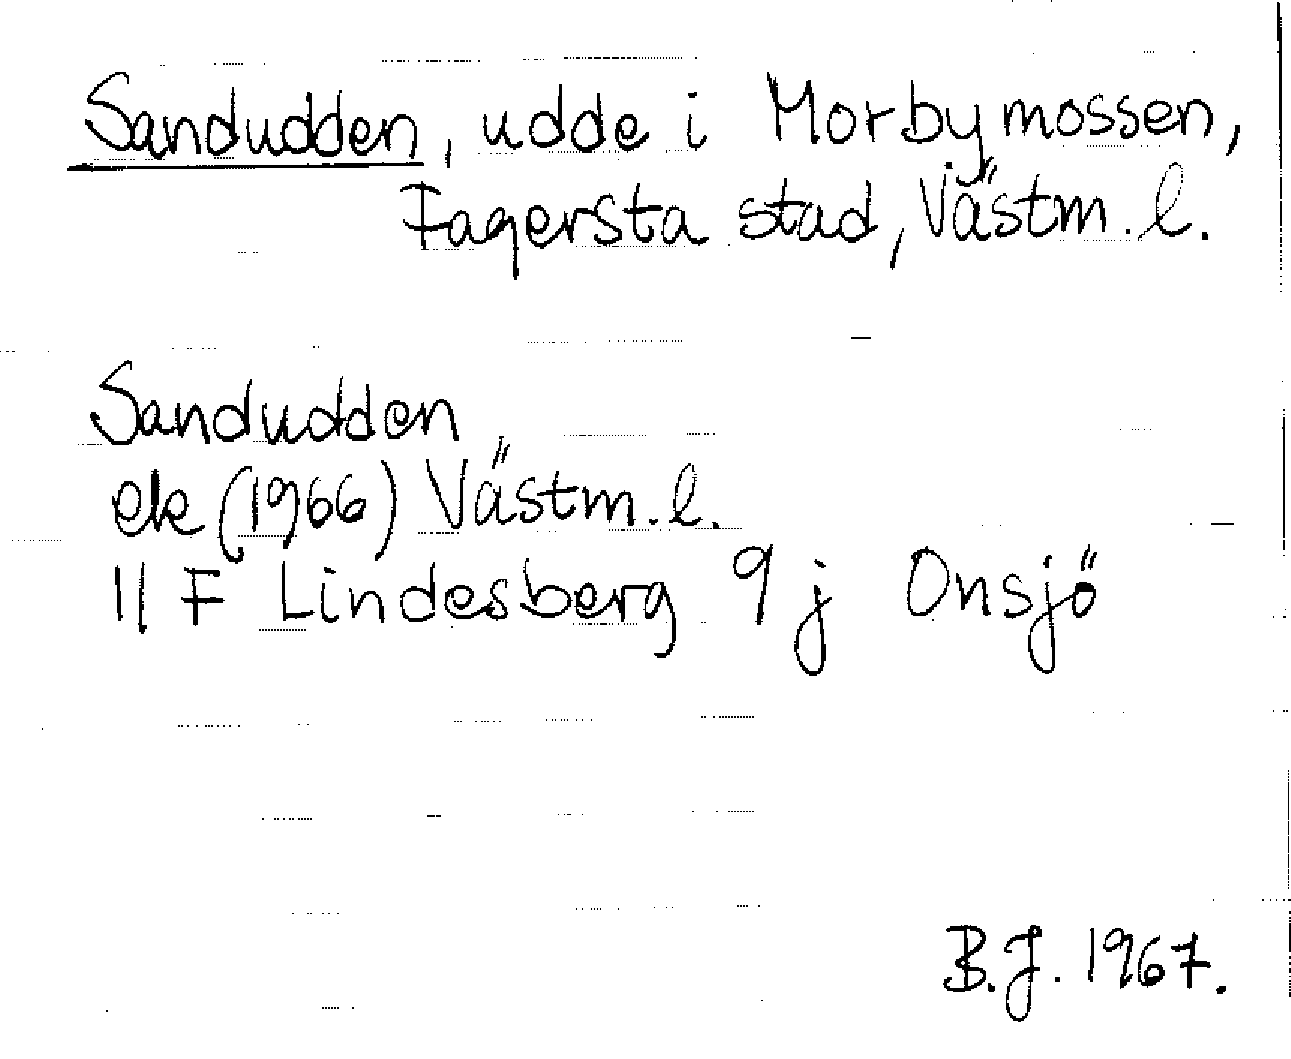 Sandudden, udde i Morbymossen,
Fagersta stad, Västm. l.
Sandudden
ek (1966) Västm. l.
11 F Lindesberg 9 j Onsjö
B.J. 1967.